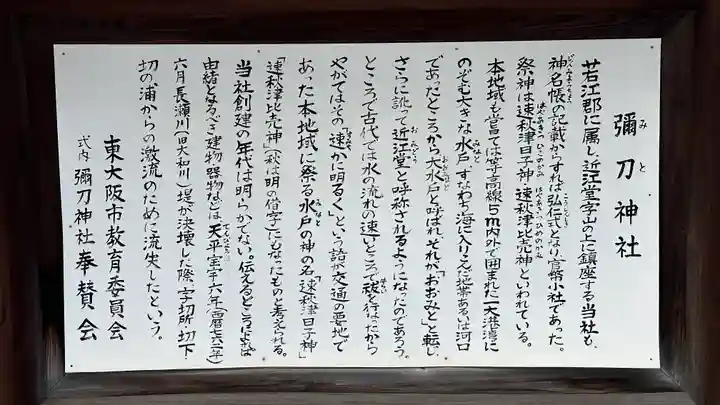 彌刀神社
若江郡に属し、近江堂字山の上に鎮座する当社も、
神名帳の記載からすれば弘仁式となり官幣小社であった。
祭神は速秋津日子神・速秋津比売神といわれている。
本地域も嘗ては等高線5m内外で囲まれた一大港湾に
のぞむ大きな水戸、すなわち海に入りこんだ地帯あるいは河口
であったところから大水戸と呼ばれ、それが「おおみと」と転じ
さらに訛って近江堂と呼称されるようになったのであろう。
ところで古代では水の流れの速いところで祓を行なったから
やがてはその「速かに明るく」という語が交通の要地で
あった本地域に祭る水戸の神の名「速秋津日子神」
「速秋津比売神」(秋は明の借字)にもなったものと考えられる。
当社創建の年代は明らかでない。伝えるところによれば
由緒となるべき建物・器物などは、天平宝字六年(西暦七六二年)
六月長瀬川(旧大和川)堤が決壊した際、字切所・切下・
切の浦からの激流のために流失したという。
東大阪市教育委員会
式内 彌刀神社奉賛会